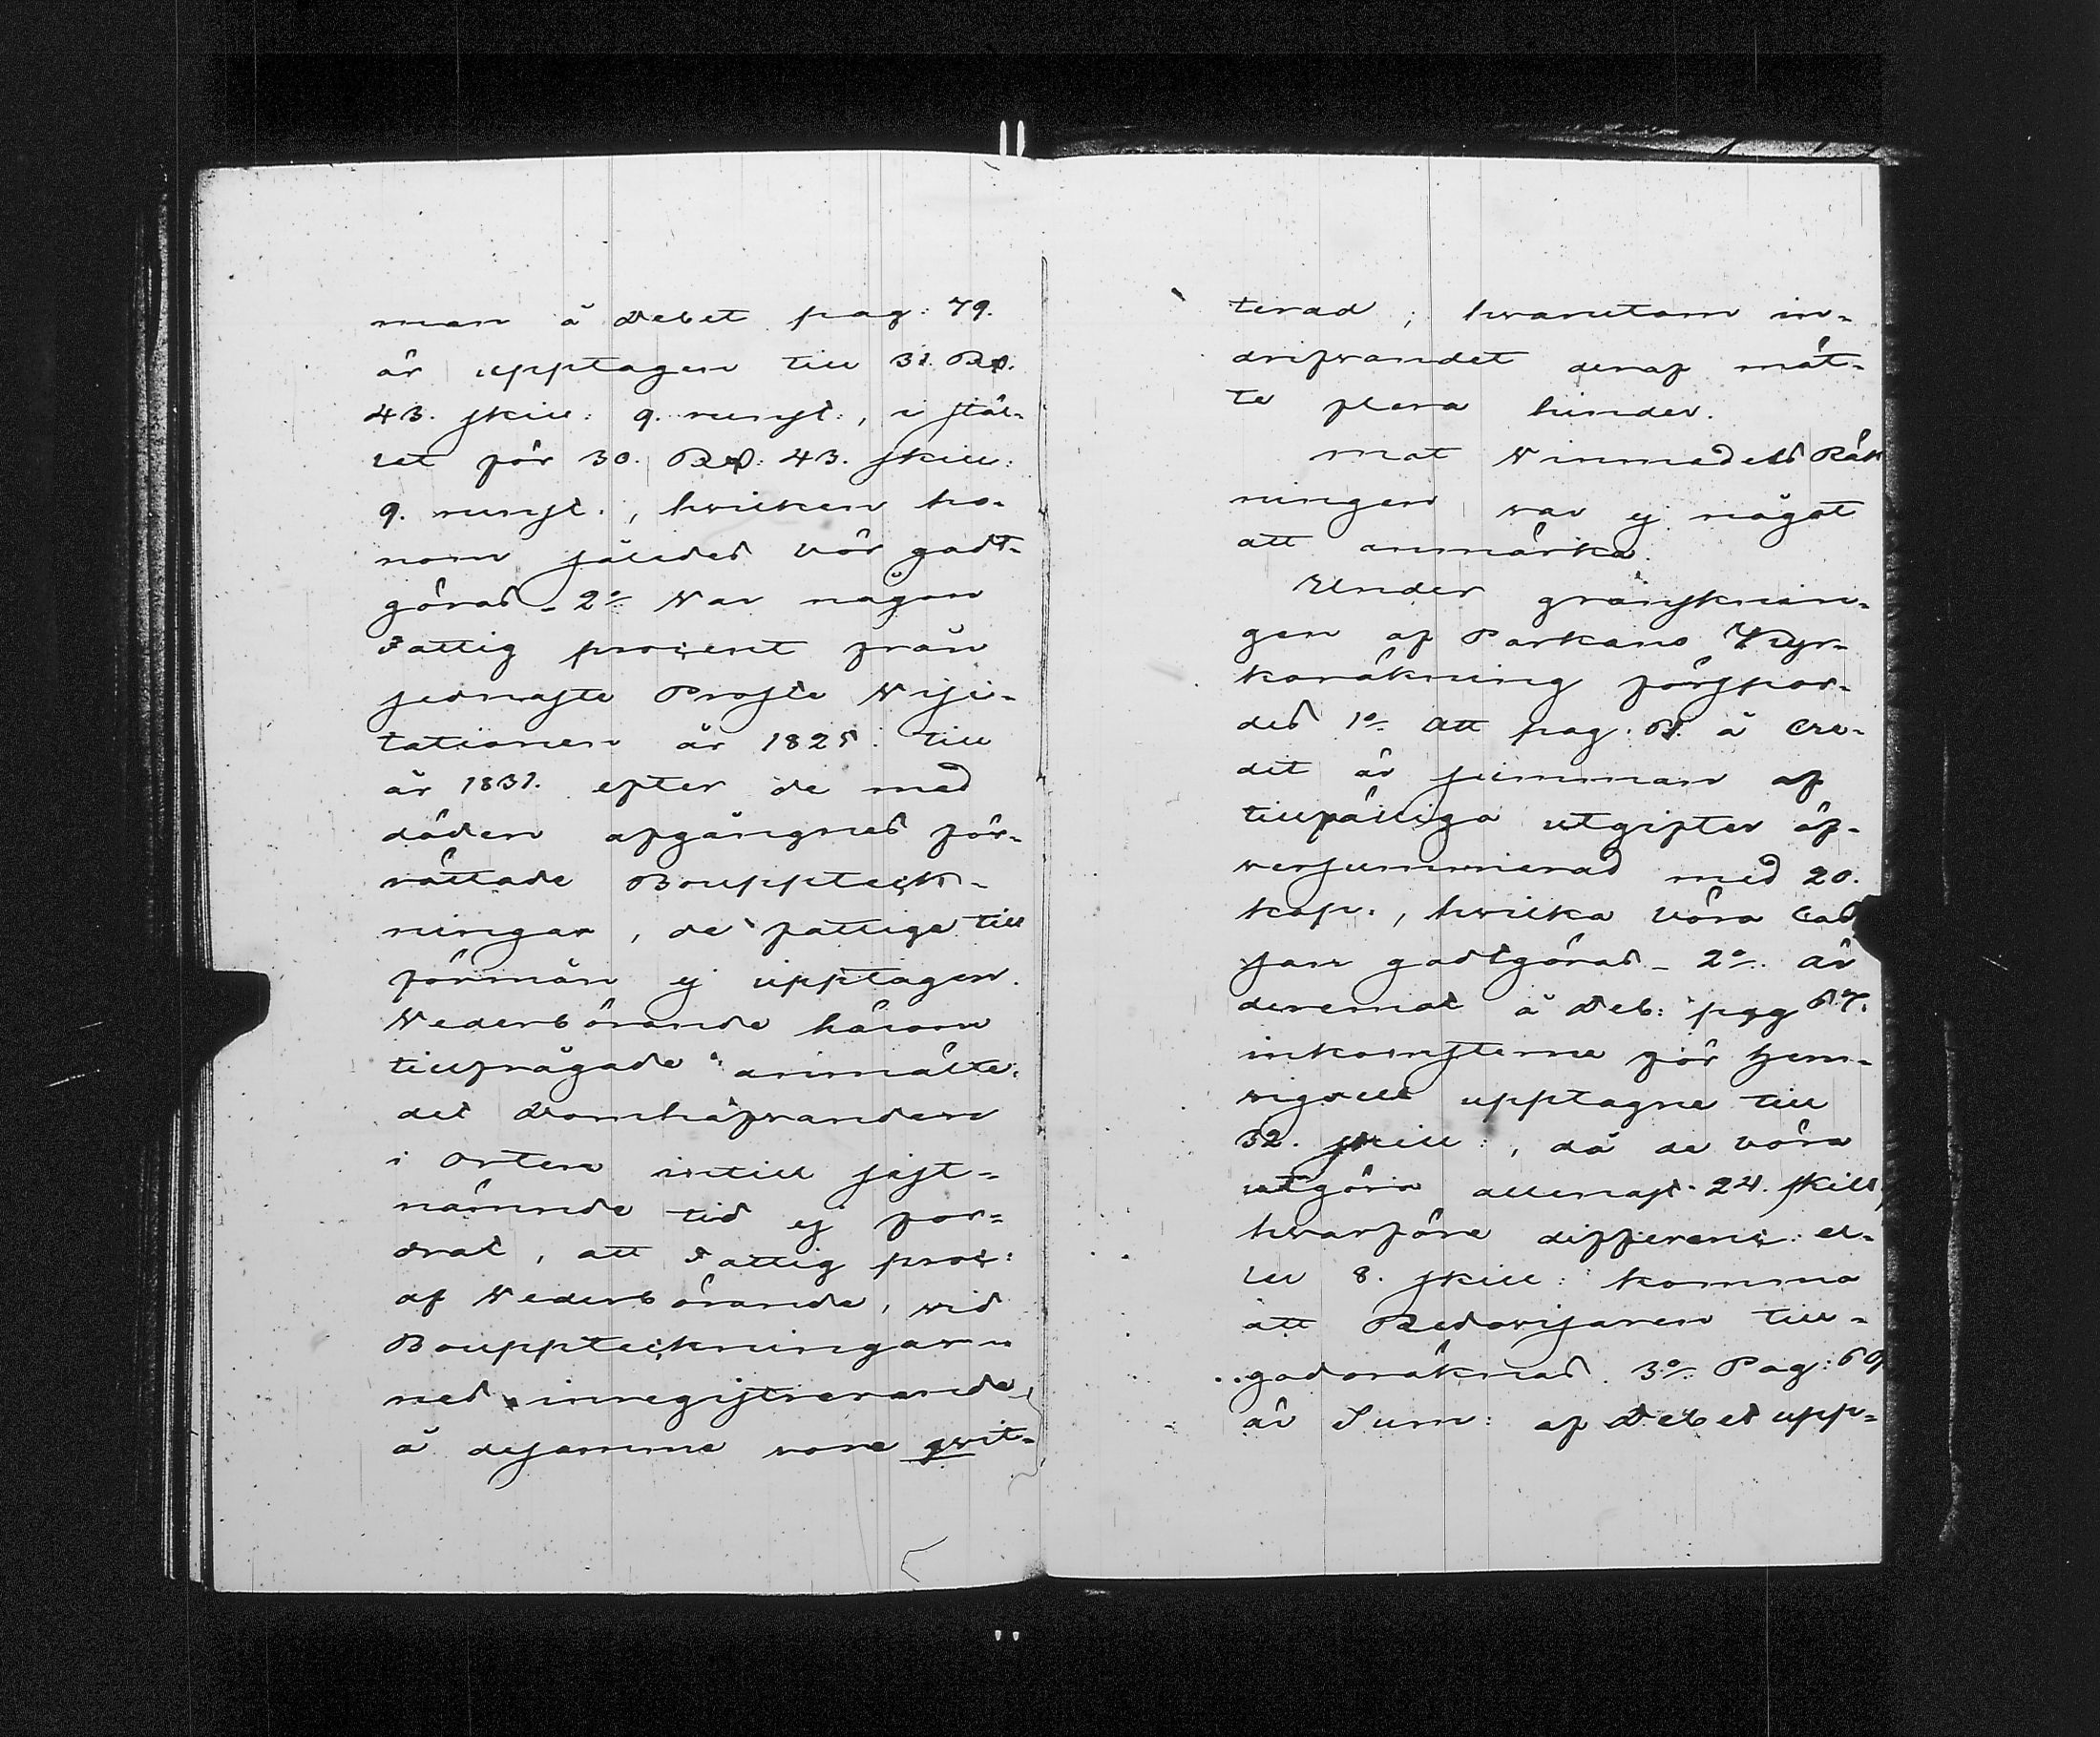 man å Debet pag: 79.
är upptagen till 31. Rd.
43. skill: 9. rungst:, i stäl-
let för 30. Rd: 43. skill:
9. rungst:, hvilken ho-
nom således bör godt-
göras_ 2o/ Var någon
Fattig procent från
sednaste Proste Visi-
tationen år 1825. till
år 1831. efter de med
döden afgångnes för-
rättade Boupptech-
ningar, de fattiga till
förmån ej upptagen.
Vederbörande härom
tillfrågade anmälte,
det Domhafvanden
i Orten intill sist-
nämnde tid ej for-
drat, att Fattig proc:
af Vederbörande, vid
Bouppteckningarn
nes inregistrerande,
å desamme vore qvit-
terad; hvarutom in-
drifvandet deraf möt-
te flera hinder.
Mot Vinmedels Räk
ningen var ej något
att anmärka.
Under gransknin-
gen af Parkano Kyr-
koräkning förspor-
des 1o/ att pag. å Cre-
dit är summan af
tillfälliga utgifter öf-
versummerad med 20.
kop:, hvilka böra Cas
san godtgöras_ 2o/. är
deremot å Deb: pag 67.
inkomsterne för
upptagne till
32. skill:, då de böra
utgöra allenast 24. skill,
hvarföre differenc: el-
ler 8. skill: komma
att Redovisaren till-
godoräknas. 3o/. Pag: 69
är Sum: af Debet upp-